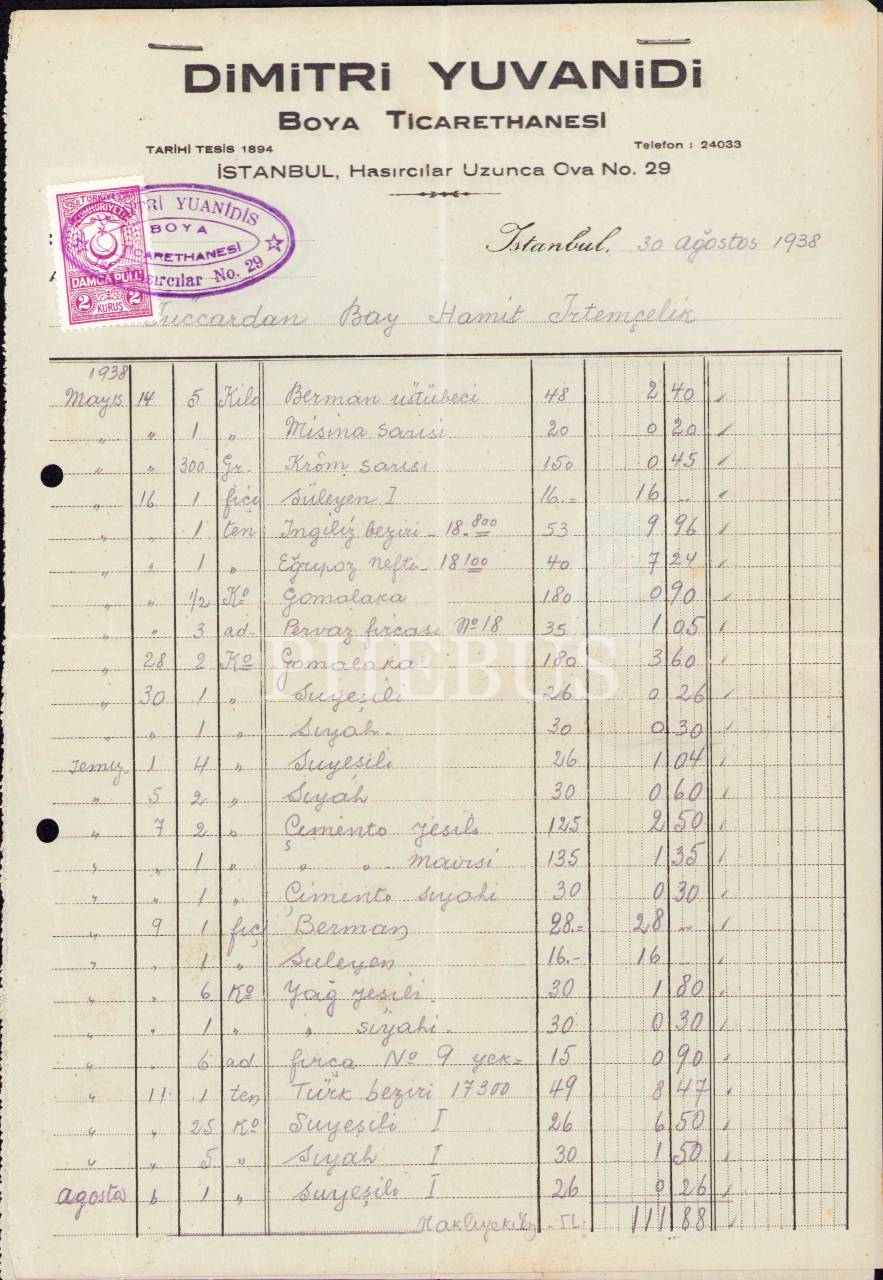 DİMİTRİ YUVANİDİ
BOYA TİCARETHANESİ
TARİHİ TESİS 1894
Telefon : 24033
İSTANBUL, Hasırcılar Uzunca Ova No. 29
TÜRKİYE
CUMHURİYETİ
DAMGA PULU
2 KURUŞ 2
YUANIDIS
BOYA
TICARETHANESİ
Hasırcılar No. 29
İstanbul, 30 Ağostos 1938
Tüccardan Bay Hamit İrtemçelik
1938
Mayıs 14 5 Kilo Berman üstübeci 48 2 40
" " 1 " Misina sarısı 20 0 20
" " 300 Gr. Krôm sarısı 150 0 45
" 16 1 fiçı Süleyen I 16.= 16 _
" " 1 ten İngiliz beziri - 18.800 53 9 96
" " 1 " Eğripoz nefte - 18100 40 7 24
" " 1/2 Ko Gomalaka 180 0 90
" " 3 ad. Pervaz fırcası No 18 35 1 05
" 28 2 Ko Gomalaka 180 3 60
" 30 1 " Suyeşili 26 0 26
" " 1 " Sıyah - 30 0 30
Temuz 1 4 " Suyeşili 26 1 04
" 5 2 " Sıyah 30 0 60
" 7 2 " Çimento yeşili 125 2 50
" " 1 " " " mavisi 135 1 35
" " 1 " Çimento sıyahi 30 0 30
" 9 1 fıçı Berman 28.= 28 _
" " 1 " Suleyen 16.- 16 _
" " 6 Ko Yağ yeşili 30 1 80
" " 1 " " sıyahi - 30 0 30
" " 6 ad fırça No 9 15 0 90
" 11 1 ten Türk beziri 17300 49 8 47
" " 25 Ko Suyeşili I 26 6 50
" " 5 " Sıyah I 30 1 50
agosto 6 1 " Suyeşili I 26 0 26
TL. 111 88
PHEBUS